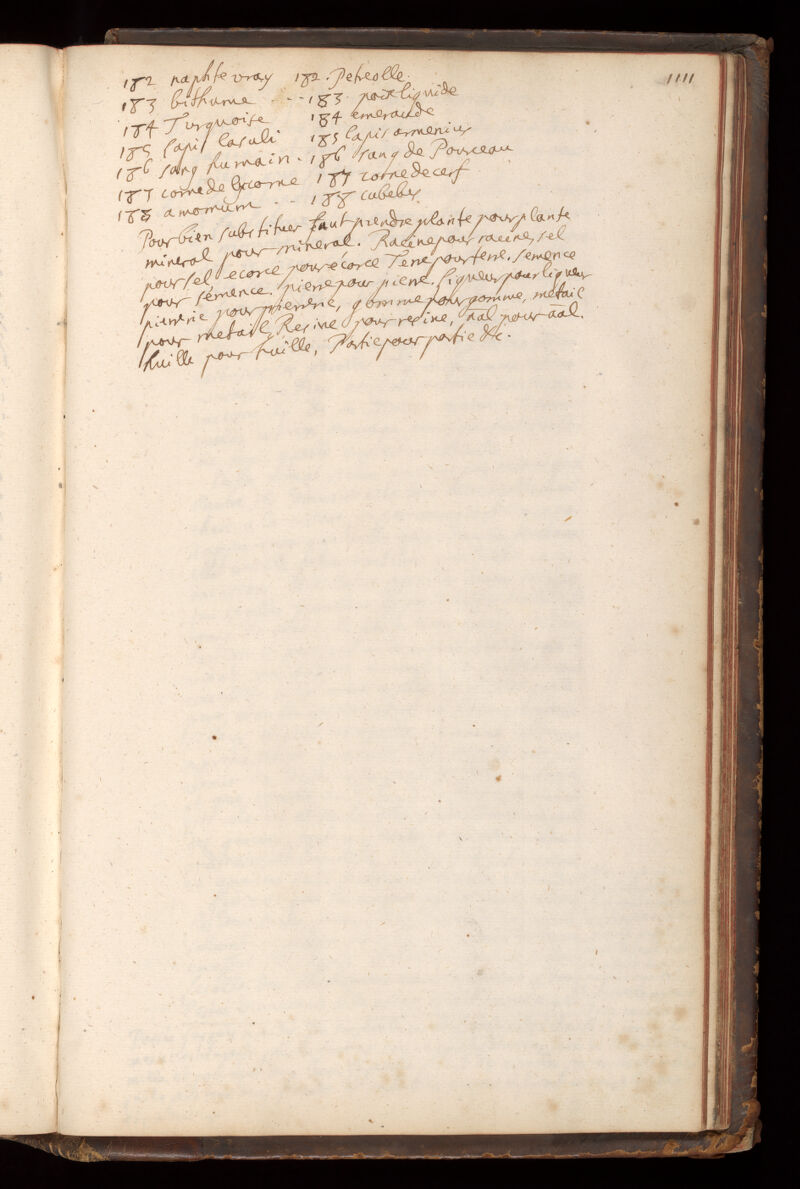 1111
182 naphte vray 182. Petreolle.
183 bithume - - - 183. poix liquide
184 Turquoise 184 emeraude
185 Lapis Lasuli 185 Lapis armenius
186 sang humain - 186 sang de Pourceau
187 corne de licorne 187 corne de cerf
188 amomum - - 188 cubebes
Pour bien substituer faut prendre plante pour plante
mineral pour mineral. Racine pour racine, sel
pour sel ecorce pour écorce Terre pour terre. semence
pour semence. pierre pour pierre. liqueur pour liqueur
pierrerie pour pierrerie, gomme pour gomme, metail
pour metail, Resine pour resine, aal pour aal.
huille pour huille, Partie pour partie &c.